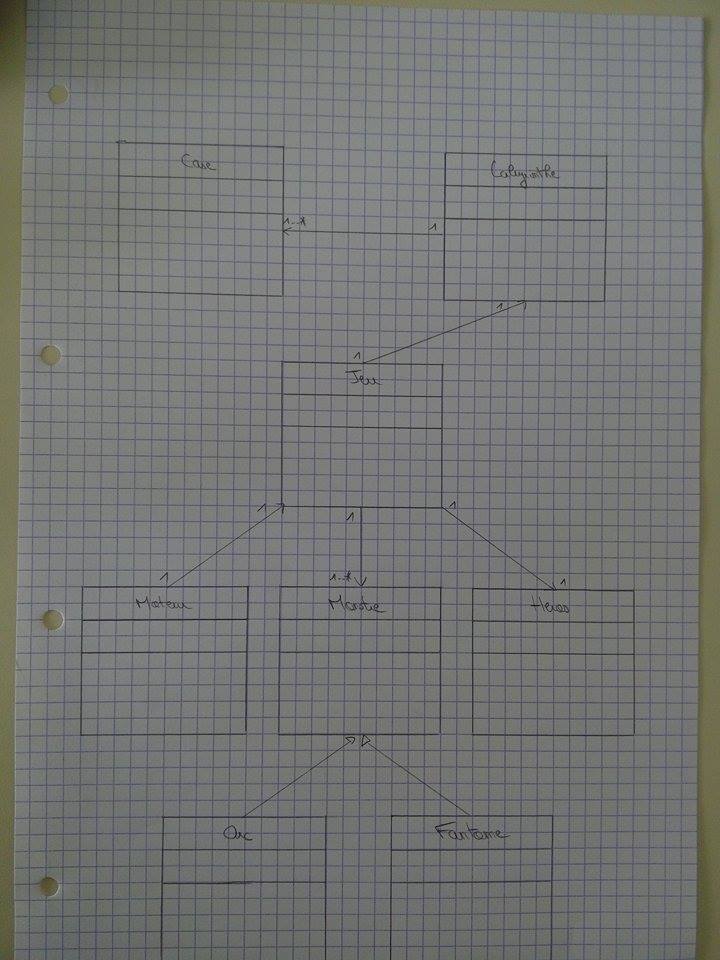 Case
Labyrinthe
1..*
1
1
1
Jeu
1
1
1
1
1..*
1
Moteur
Monstre
Heros
Orc
Fantome